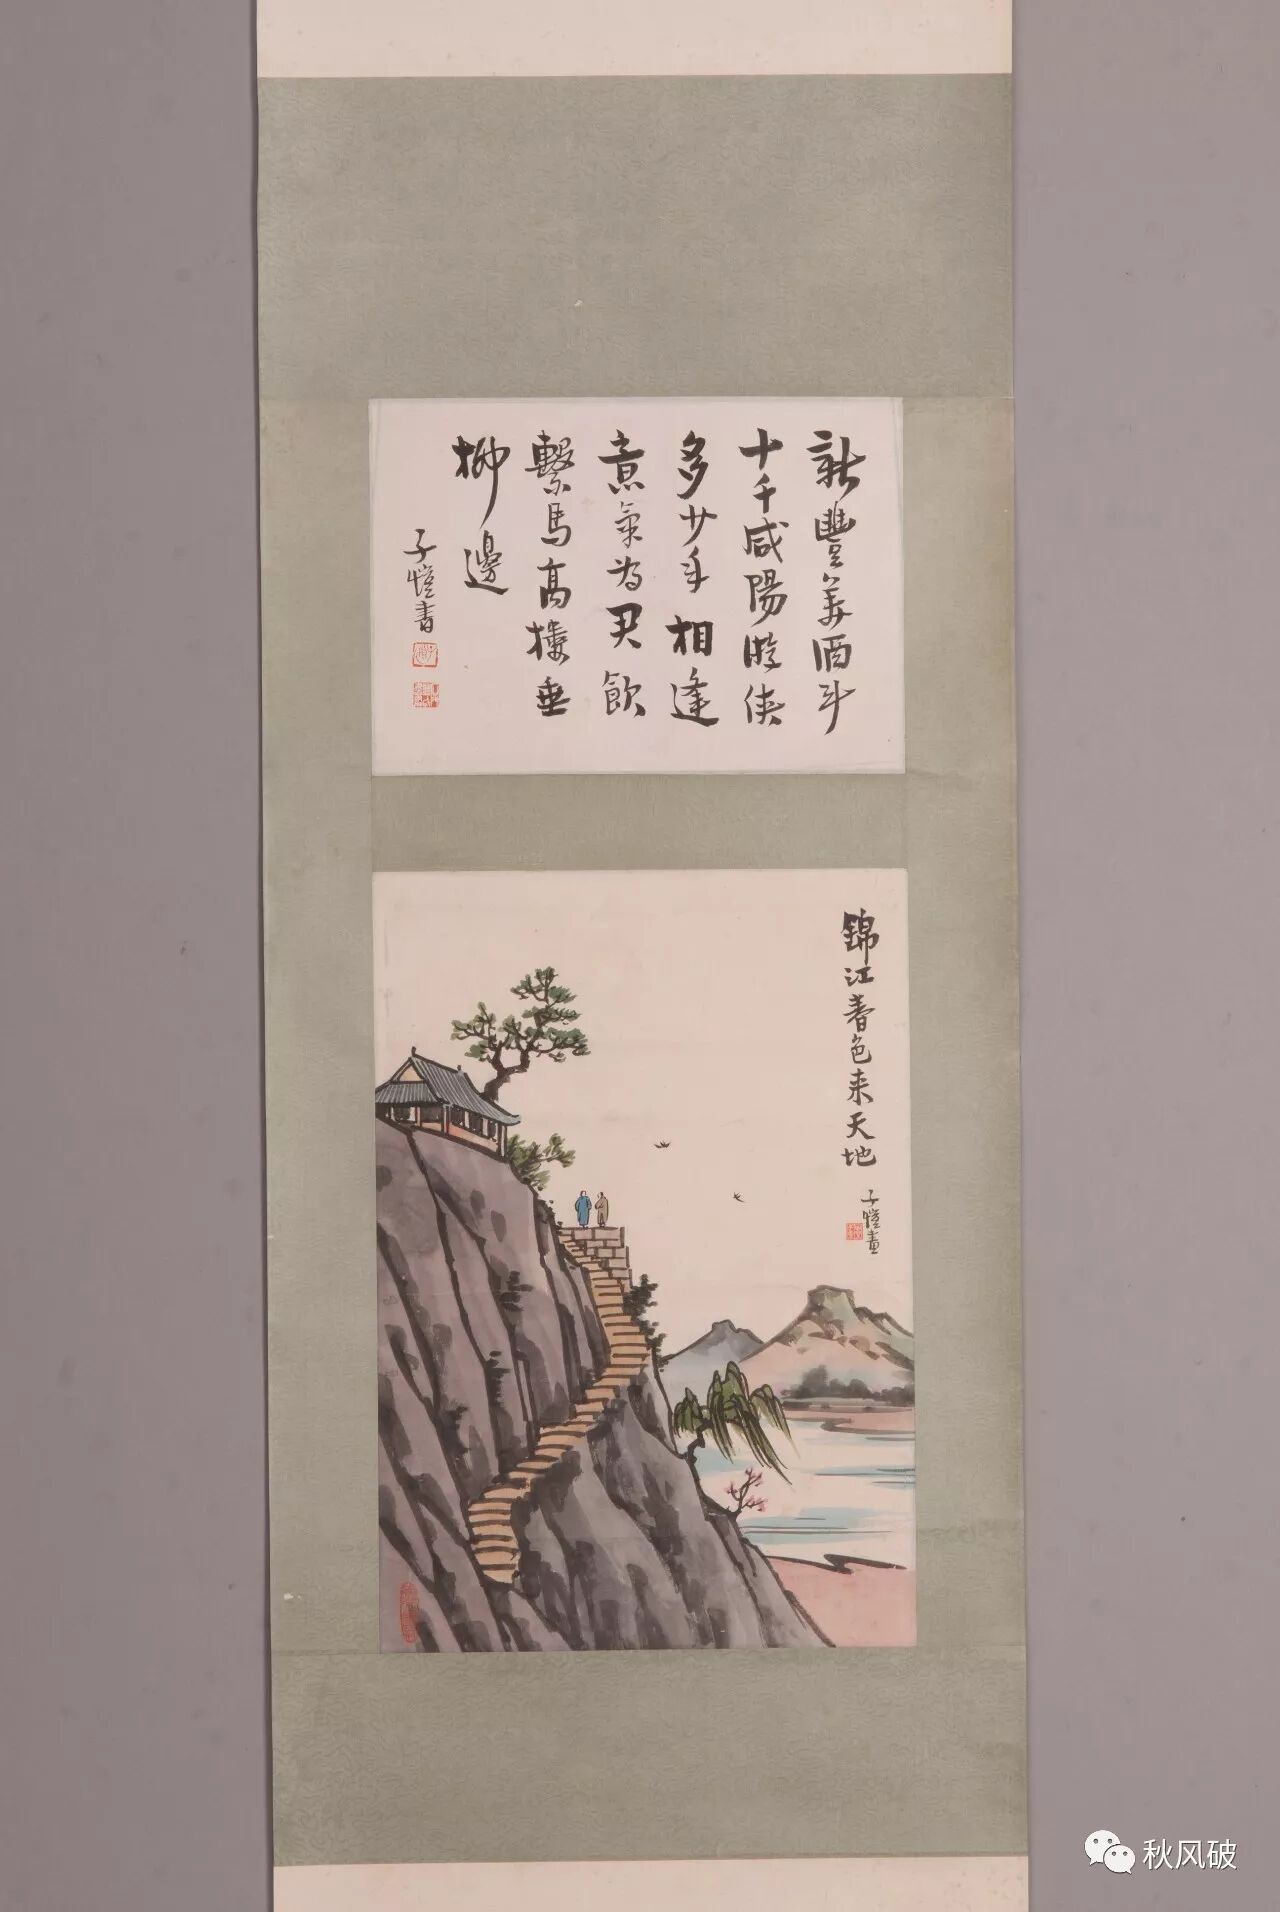 新豐美酒斗
十千咸陽游俠
多少年相逢
意氣為君飲
繫馬高樓垂
柳邊
子愷書
錦江春色来天地
子愷畫
秋风破